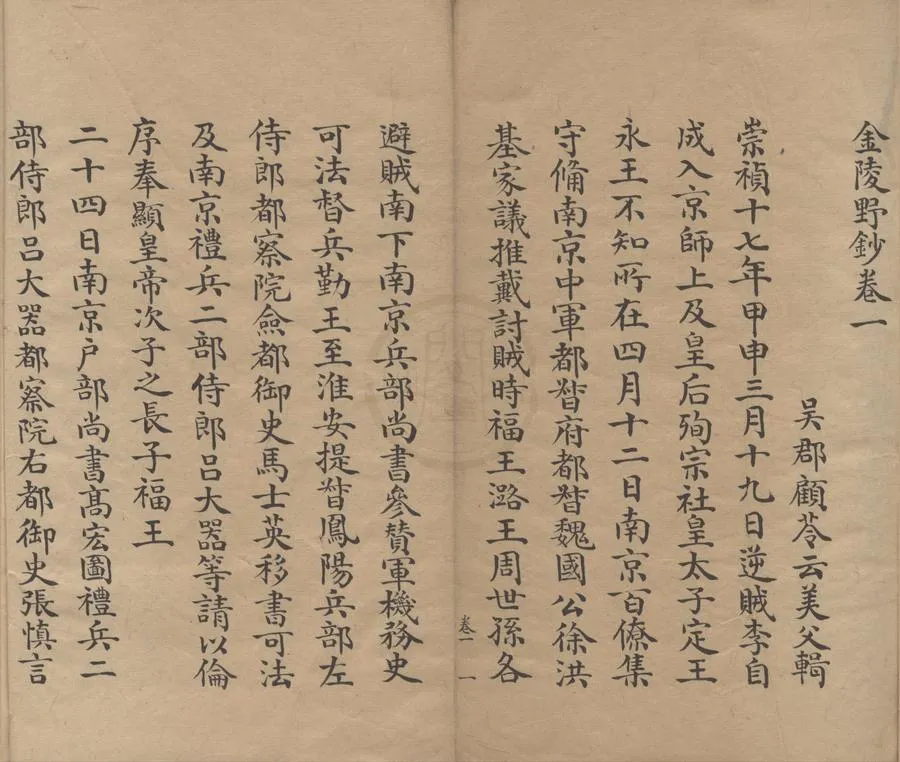 金陵野鈔卷一
吴郡顧苓云美父輯
崇禎十七年甲申三月十九日逆賊李自
成入京師上及皇后殉宗社皇太子定王
永王不知所在四月十二日南京百僚集
守俻南京中軍都督府都督魏國公徐洪
基家議推戴討賊時福王潞王周世孫各
卷一 一
避賊南下南京兵部尚書叅贊軍機務史
可法督兵勤王至淮安提督鳳陽兵部左
侍郎都察院僉都御史馬士英移書可法
及南京禮兵二部侍郎吕大器等請以倫
序奉顯皇帝次子之長子福王
二十四日南京户部尚書高宏圖禮兵二
部侍郎吕大器都察院右都御史張慎言